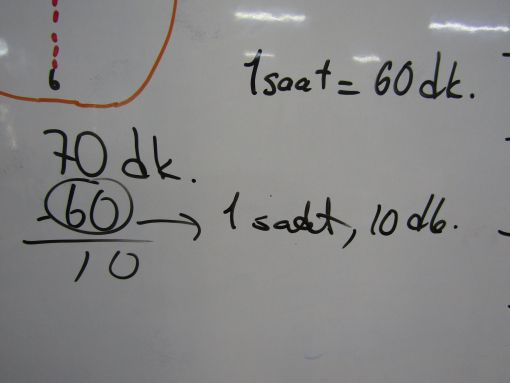 6
1 saat = 60 dk.
70 dk.
-60 → 1 saat, 10 dk.
10